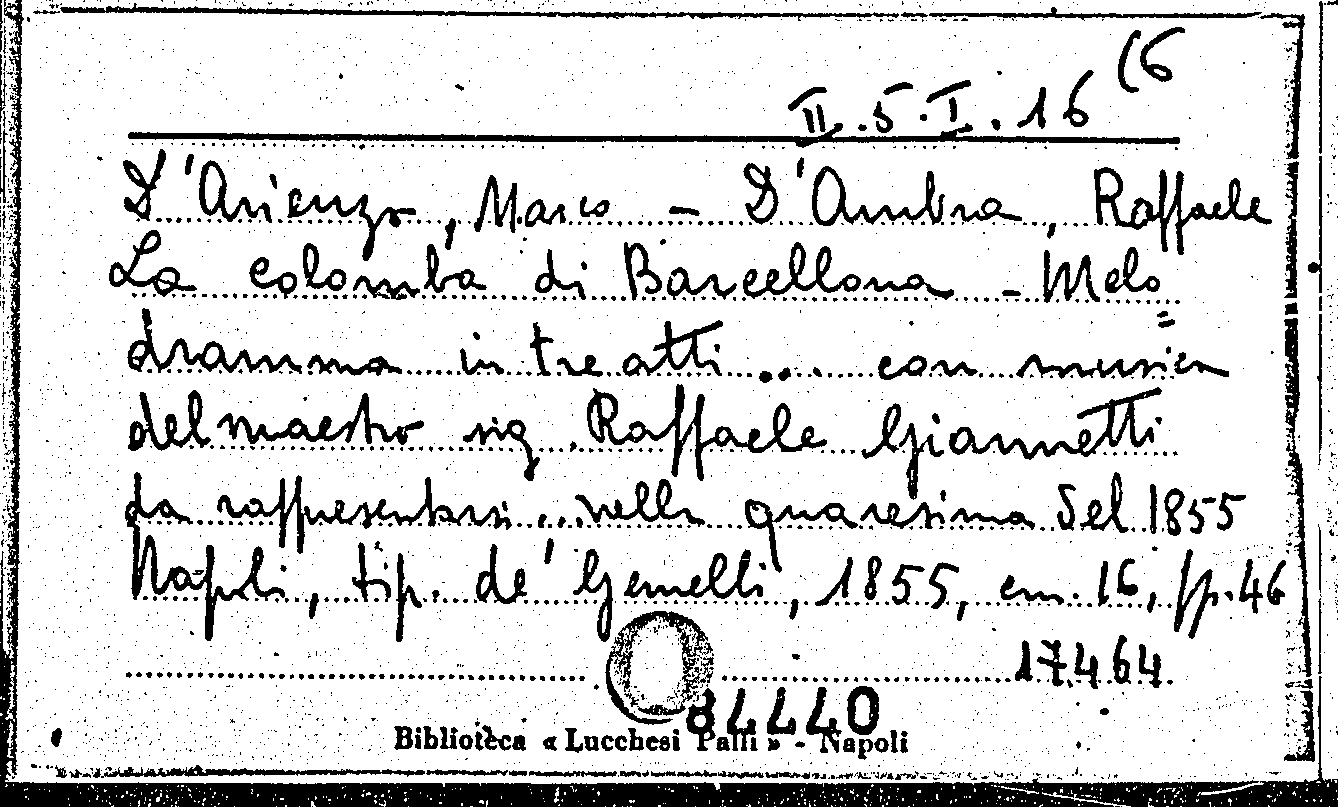 II.5.I.16 (6
D'Arienzo, Marco - D'Ambra, Raffaele
La colomba di Barcellona - Melo=
dramma in tre atti ... con musica
del maestro sig. Raffaele Giannetti
da rappresentarsi ... nella quaresima del 1855
Napoli, tip. de' Gemelli, 1855, cm. 16, pp. 46
17464
Biblioteca « Lucchesi Palli » - Napoli